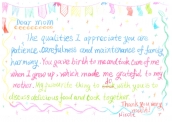 Dear mom
The qualities I appreciate you are
patience carefulness and maintenance of family
harmony. You gave birth to me and took care of me
when I grew up, which made me grateful to my
mother. My favorite thing to do with you is to
cook delicious food and cook together.
Thank you very